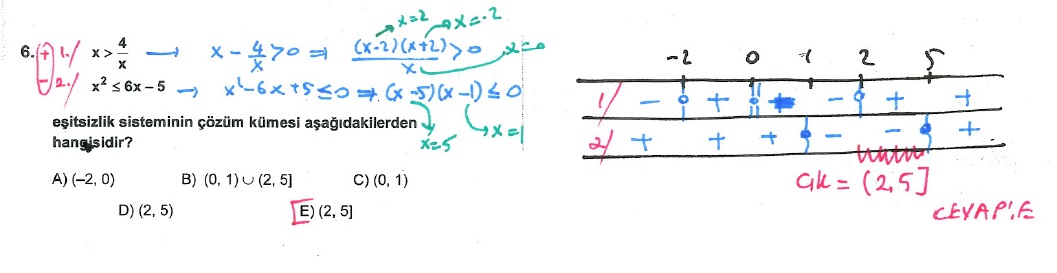 6. + 1./ x > 4/x → x - 4/x > 0 ⇒ (x-2)(x+2)/x > 0 x=2 x=-2 x=0
- 2./ x² ≤ 6x - 5 → x²-6x+5 ≤ 0 ⇒ (x-5)(x-1) ≤ 0 x=5 x=1
eşitsizlik sisteminin çözüm kümesi aşağıdakilerden
hangisidir?
A) (–2, 0) B) (0, 1) ∪ (2, 5] C) (0, 1)
D) (2, 5) E) (2, 5]
-2 0 1 2 5
1/ - + + - + +
2/ + + + - - +
ÇK = (2,5]
CEVAP: E